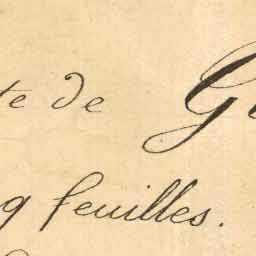 te de G
q feuilles.